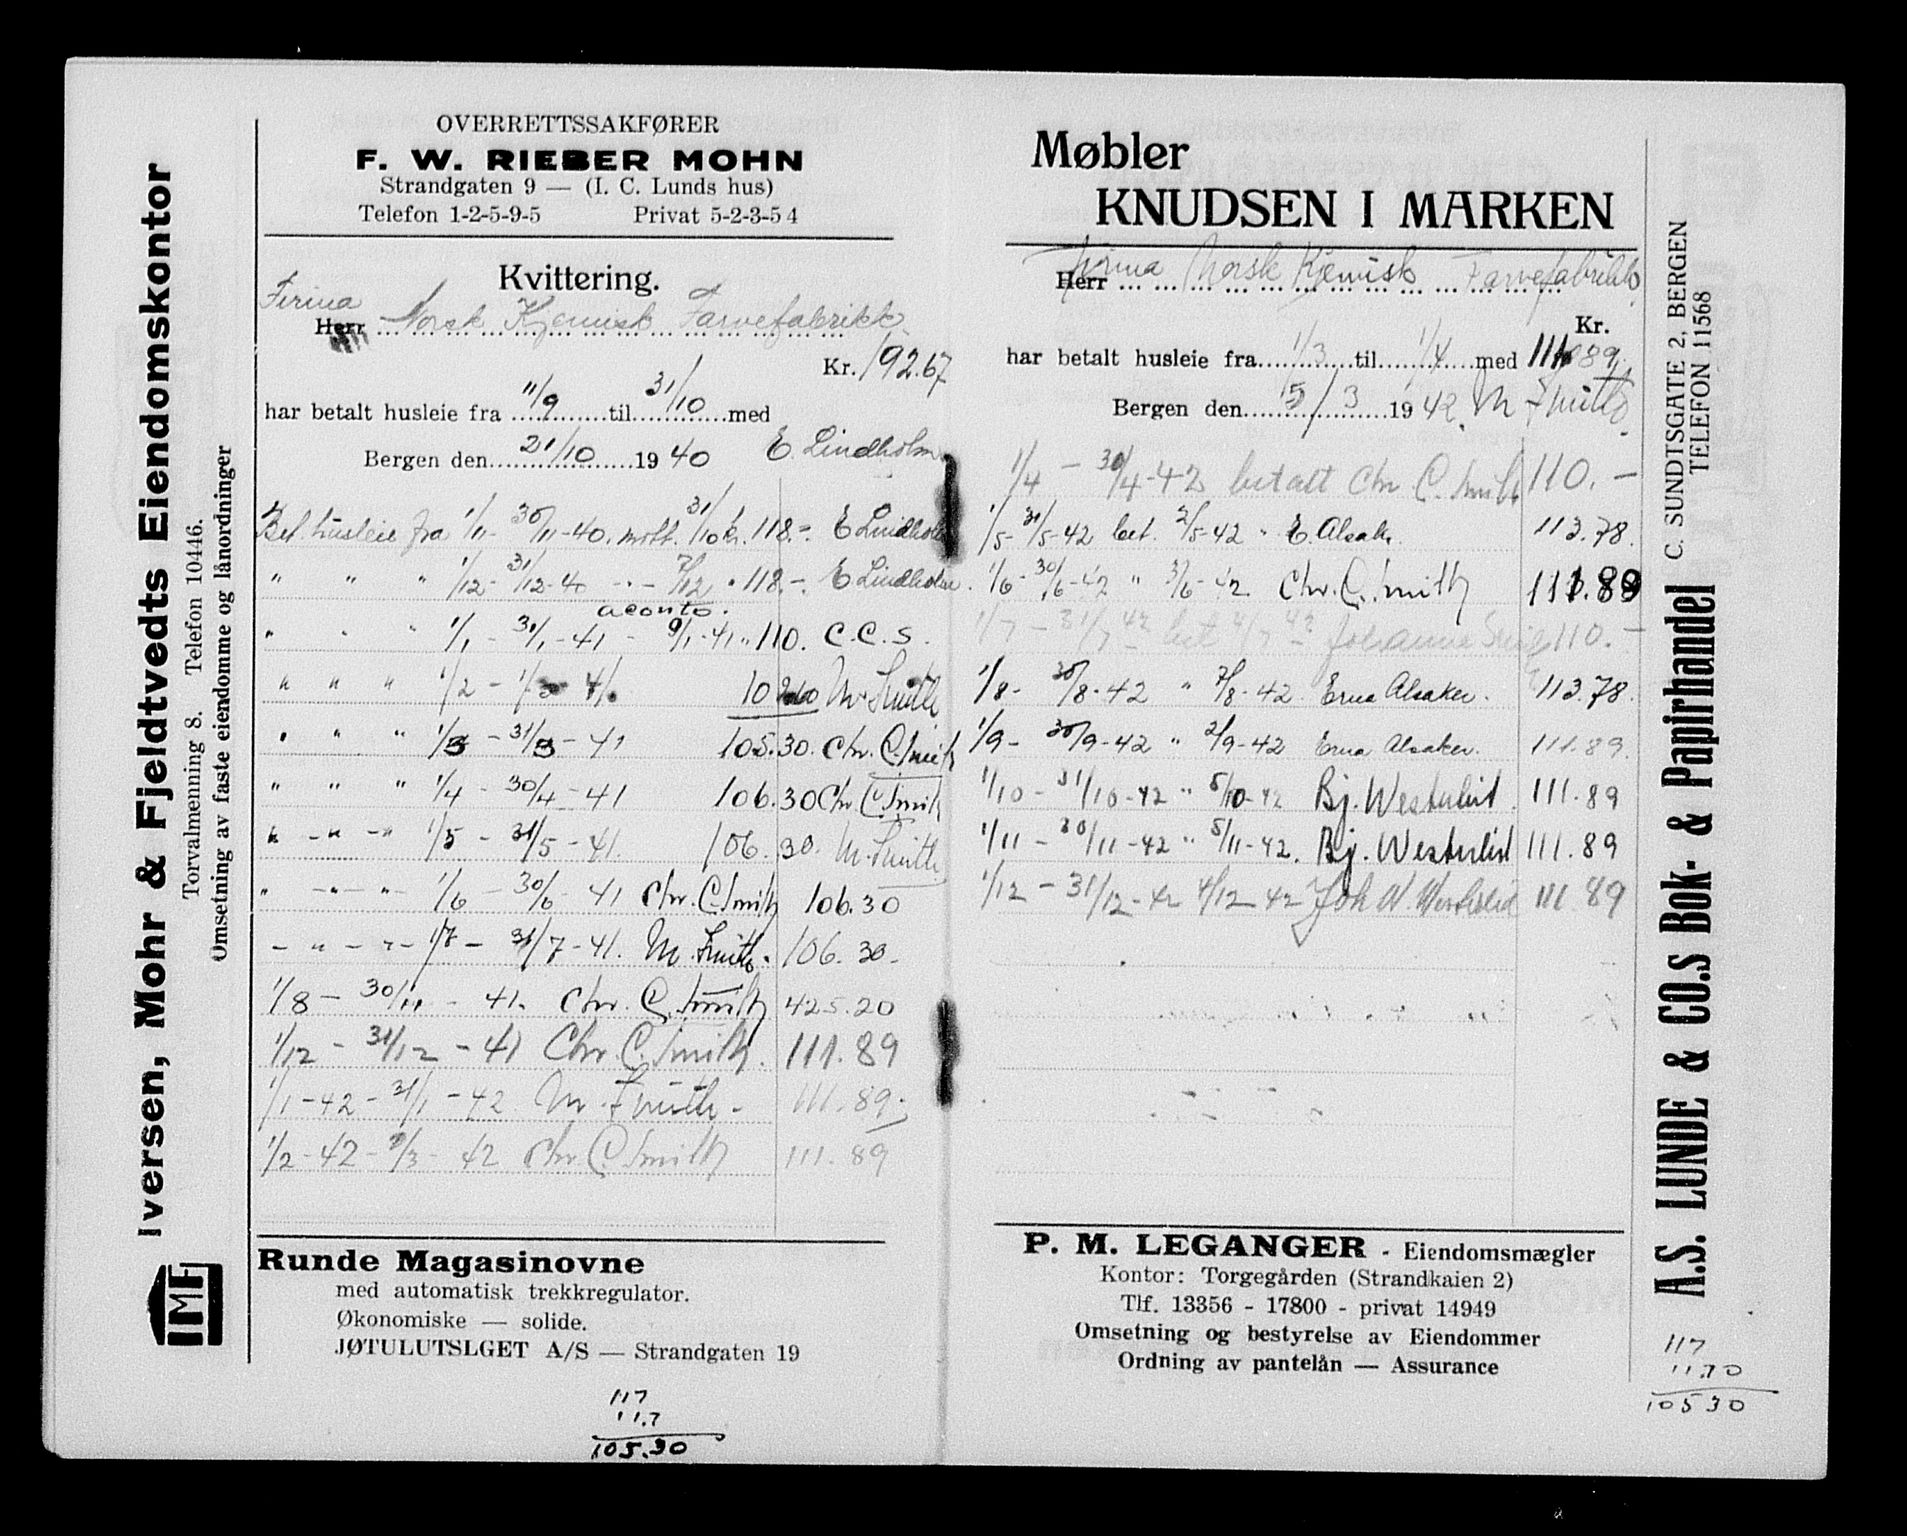 Iversen, Mohr & Fjeldtvedts Eiendomskontor
Torvalmenning 8. Telefon 10446.
Omsetning av faste eiendomme og lånordninger
IMF
OVERRETTSSAKFØRER
F. W. RIEBER MOHN
Strandgaten 9 — (I. C. Lunds hus)
Telefon 1-2-5-9-5 Privat 5-2-3-5 4
Kvittering.
Firma
Herr Norsk Kjemisk Farvefabrikk.
Kr. 192.67
har betalt husleie fra 11/9 til 31/10 med
Bergen den 21/10 1940 E. Lindholm
Bet. husleie fra 1/11 - 30/11-40. mott. 31/10 kr. 118.- E Lindholm
" " " 1/12 - 31/12-40 - " - 7/12 " 118.- E Lindholm.
aconto.
" " " 1/1 - 31/1-41 - 9/1-41 " 110. C.C.S.
" " " 1/2 - 41. M. Smith
" " " 1/3 - 31/3 - 41 105.30. Chr. C. Smith
" " " 1/4 - 30/4 - 41 106.30 Chr. C. Smith
" - " - " 1/5 - 31/5 - 41. 106.30. M. Smith
" - " - " - 1/6 - 30/6 - 41 Chr. C. Smith 106.30
- " - " - 1/7 - 31/7 - 41. M. Smith. 106.30-
1/8 - 30/11 - 41. Chr. C. Smith 425.20
1/12 - 31/12 - 41 Chr. C. Smith. 111.89
1/1 - 42 - 31/1 - 42 M. Smith - 111.89.-
1/2 - 42 - /3 - 42 Chr. C. Smith 111.89
Runde Magasinovne
med automatisk trekkregulator.
Økonomiske — solide.
JØTULUTSLGET A/S — Strandgaten 19
117
11.7
105.30
Møbler
KNUDSEN I MARKEN
Herr Firma Norsk Kjemisk Farvefabrikk
Kr.
har betalt husleie fra 1/3 til 1/4 med 111.89.
Bergen den 5/3 1942. M. Smith.
1/4 - 30/4-42 betalt Chr. C. Smith 110.-
1/5 - 31/5-42 bet. 2/5-42 " E Alsaker. 113.78.
1/6 - 30/6-42 " 3/6-42. Chr. C. Smith 111.89
1/7 - 31/7 42 bet 4/7 42 - Johanne 110.-
1/8 - 30/8-42 " 7/8-42. Erna Alsaker. 113.78.
1/9 - 30/9-42 " 2/9-42 Erna Alsaker. 111.89.
1/10 - 31/10-42 " 5/10-42 Bj. Westerlid. 111.89
1/11 - 30/11-42 " 5/11-42. Bj. Westerlid 111.89
1/12 - 31/12-42 4/12 42 Joh W. Westerlid 111.89
P. M. LEGANGER - Eiendomsmægler
Kontor: Torgegården (Strandkaien 2)
Tlf. 13356 - 17800 - privat 14949
Omsetning og bestyrelse av Eiendommer
Ordning av pantelån — Assurance
A.S. LUNDE & CO.s Bok- & Papirhandel C. SUNDTSGATE 2, BERGEN
TELEFON 11568
117
11.70
105 30